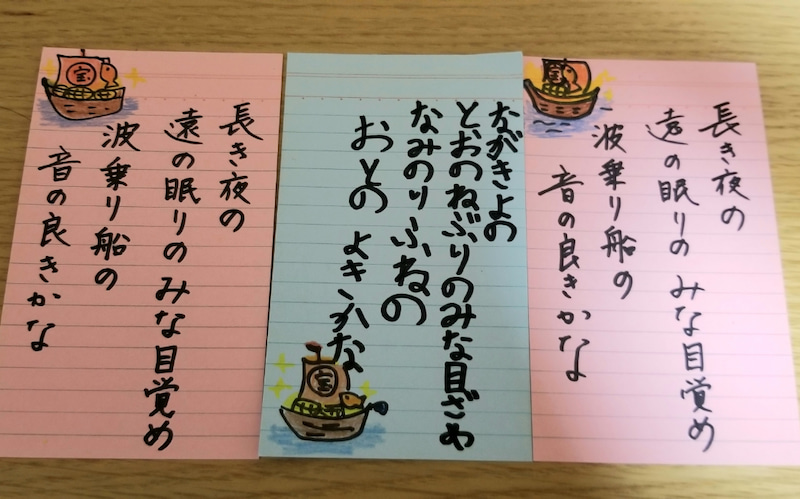 宝
長き夜の
遠の眠りのみな目覚め
波乗り船の
音の良きかな
ながきよの
とおのねぶりのみな目ざめ
なみのりふねの
おとのよきかな
宝
長き夜の
遠の眠りのみな目覚め
波乗り船の
音の良きかな